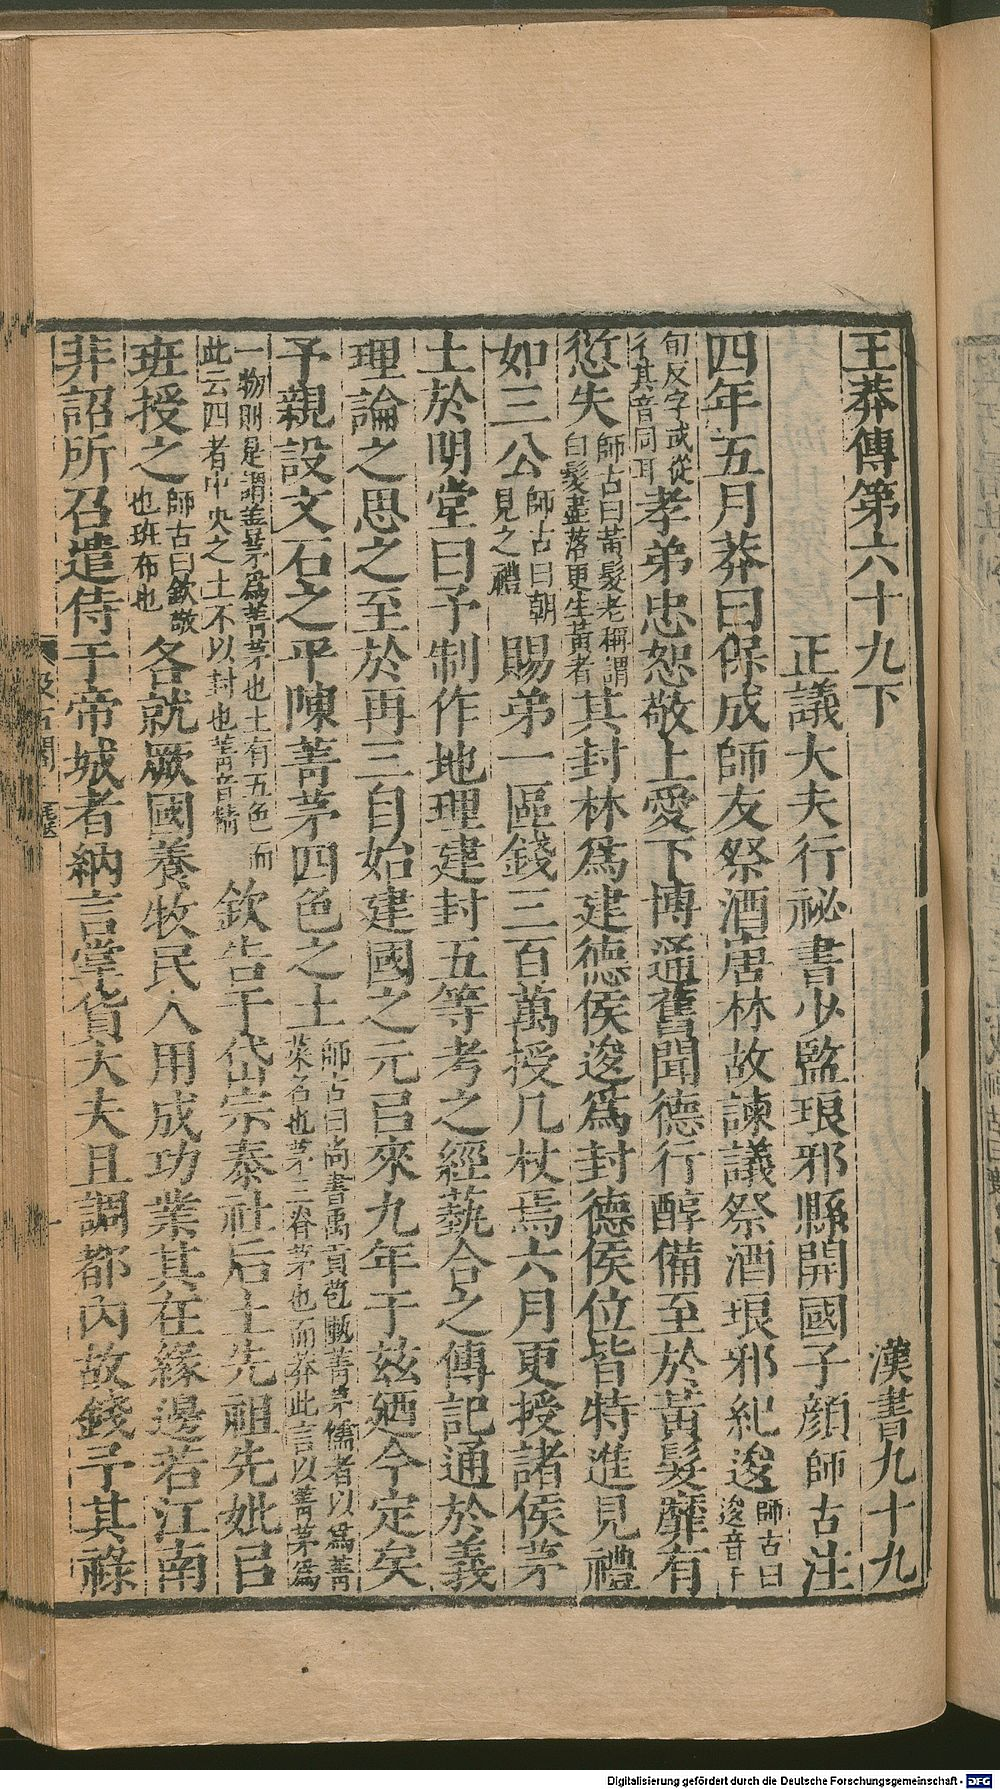 王莽傳第六十九下　漢書九十九
正議大夫行祕書少監琅邪縣開國子顏師古注
四年五月莽曰保成師友祭酒唐林故諫議祭酒琅邪紀逡師古曰逡音千
旬反字或從彳其音同耳孝弟忠恕敬上愛下博通舊聞德行醇備至於黃髮靡有
愆失師古曰黃髮老稱謂白髮盡落更生黃者其封林爲建德侯逡爲封德侯位皆特進見禮
如三公師古曰朝見之禮賜弟一區錢三百萬授几杖焉六月更授諸侯茅
土於明堂曰予制作地理建封五等考之經藝合之傳記通於義
理論之思之至於再三自始建國之元㠯來九年于茲廼今定矣
予親設文石之平陳菁茅四色之土師古曰尚書禹貢苞匭菁茅儒者以爲菁菜名也茅三脊茅也而莽此言以菁茅爲
一物則是謂善茅爲菁茅也土有五色而此云四者中央之土不以封也菁音精欽告于岱宗泰社后土先祖先妣㠯
班授之師古曰欽敬也班布也各就厥國養牧民人用成功業其在緣邊若江南
非詔所召遣侍于帝城者納言掌貨大夫且調都內故錢予其祿
汲古閣
Digitalisierung gefördert durch die Deutsche Forschungsgemeinschaft - DFG